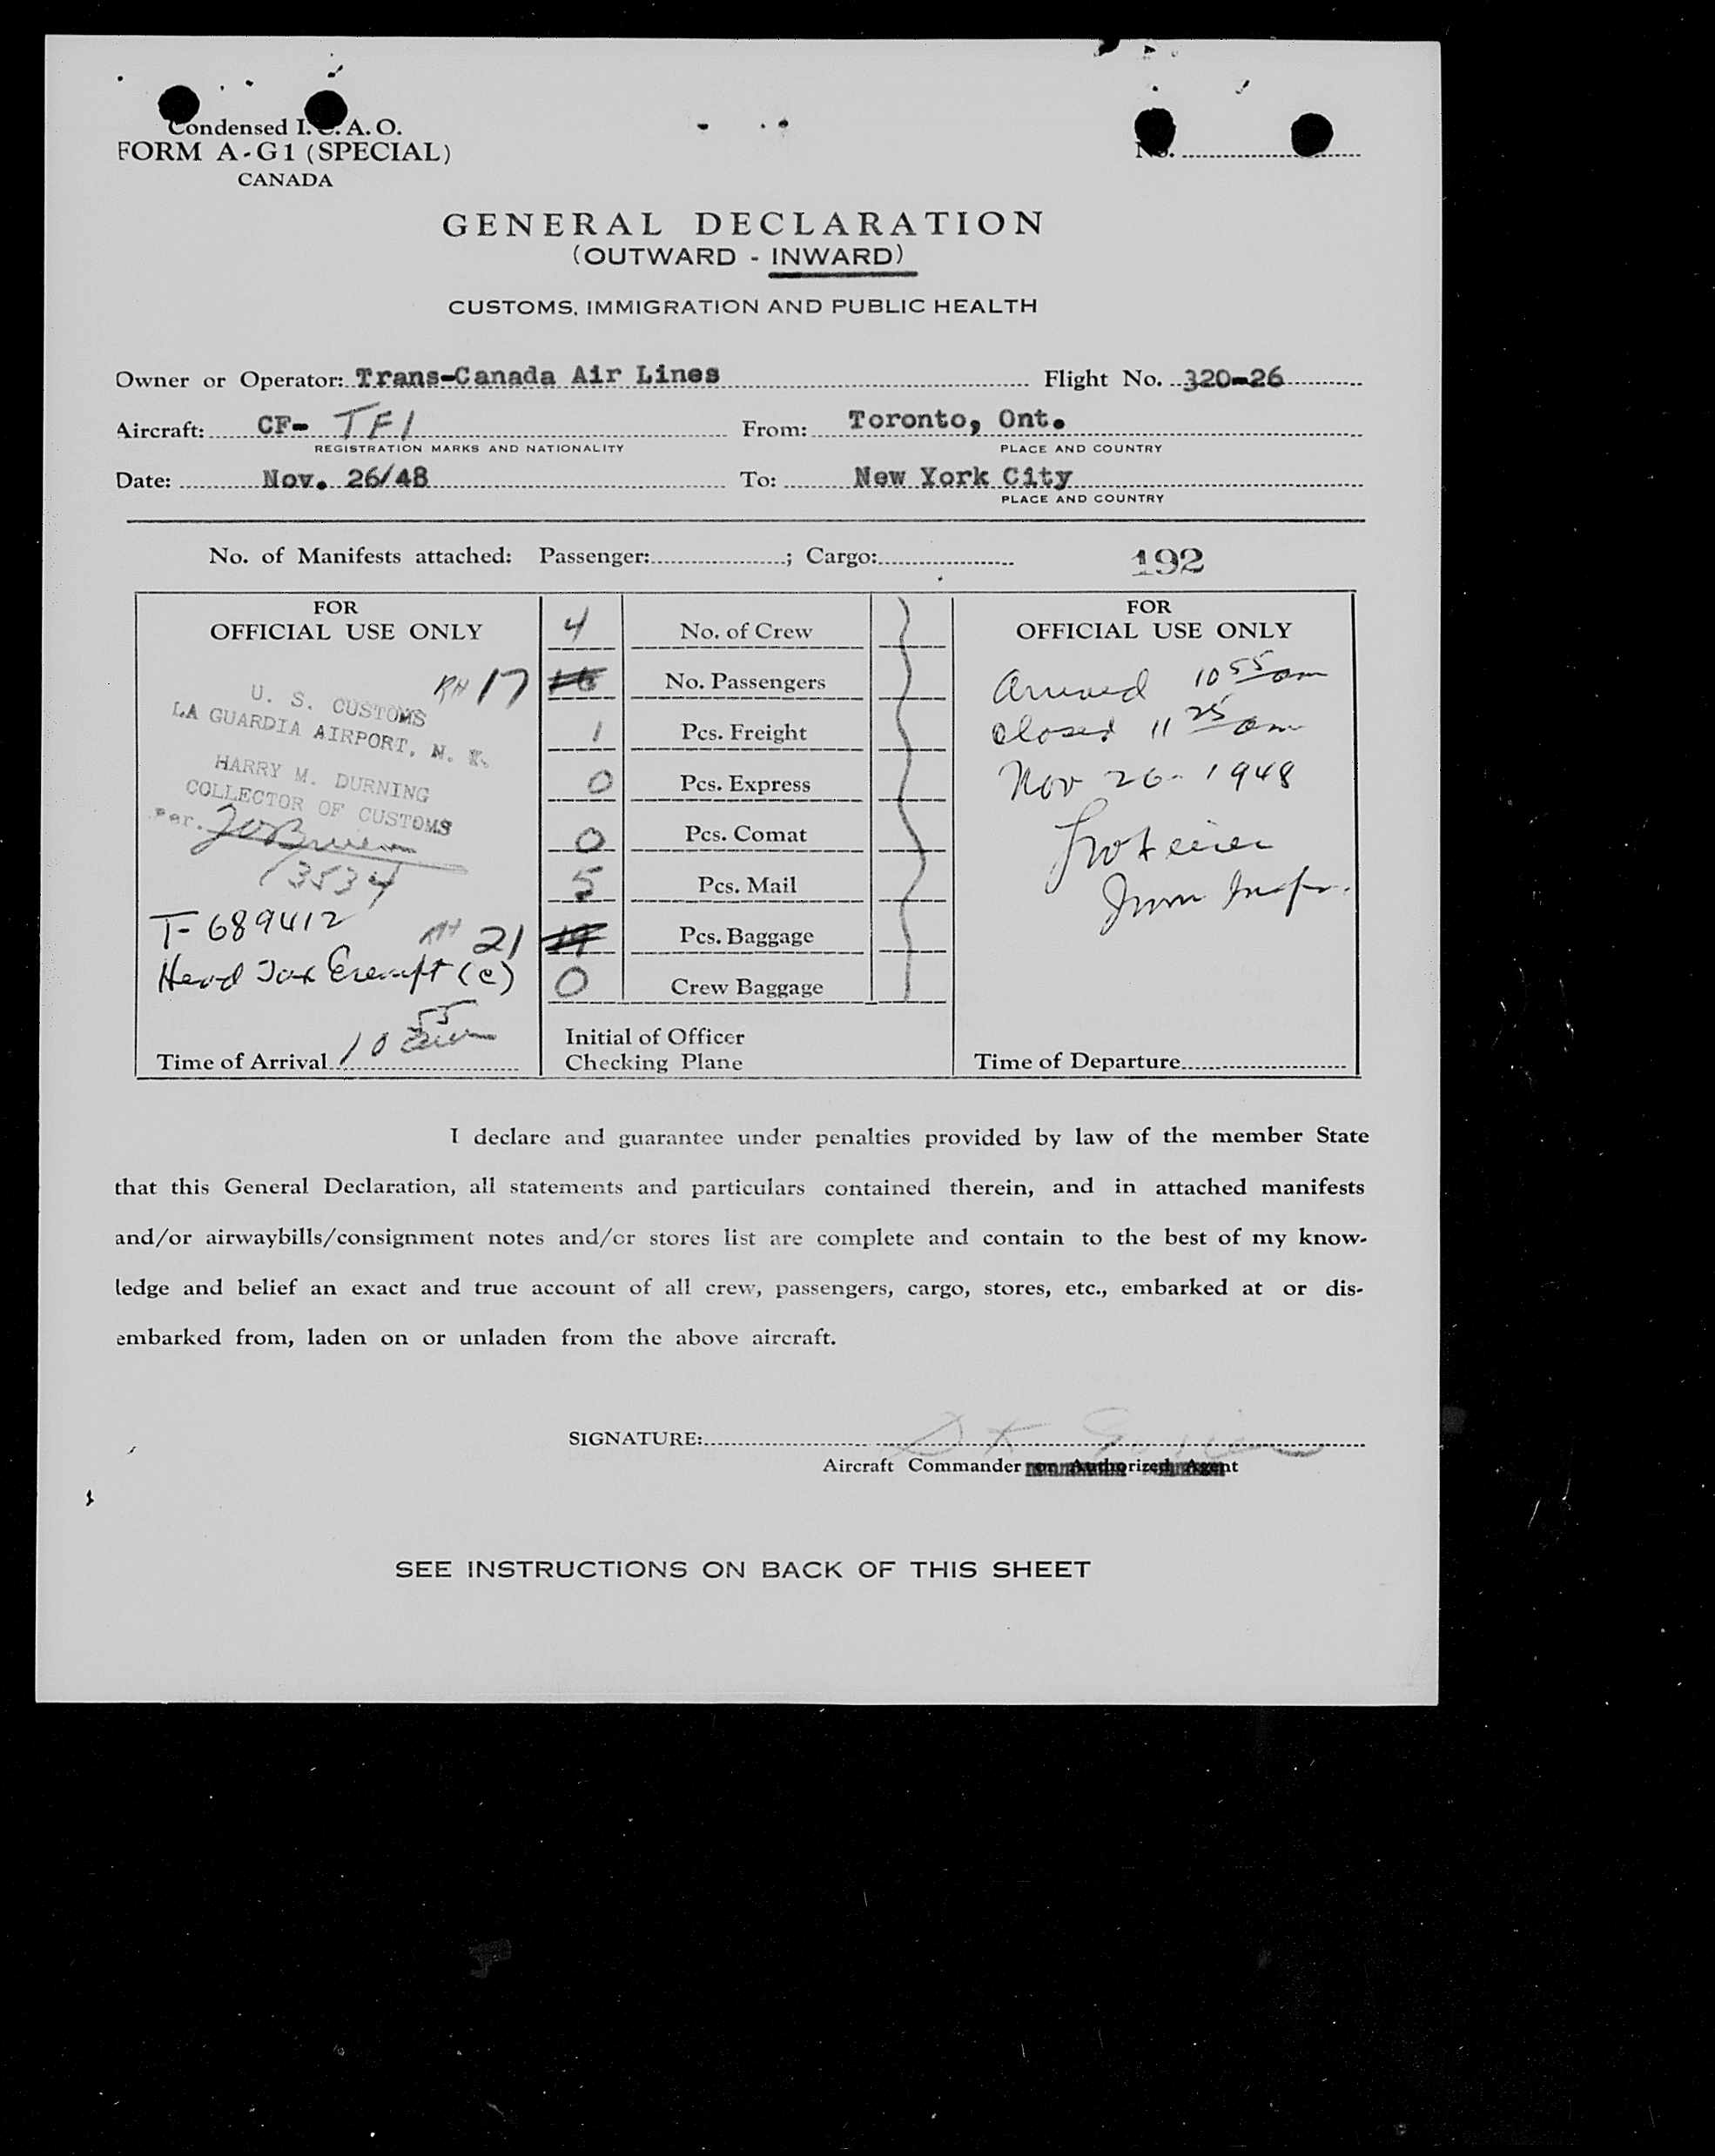 Condensed I.C.A.O.
FORM A-G1 (SPECIAL)
CANADA
No.
GENERAL DECLARATION
(OUTWARD - INWARD)
CUSTOMS, IMMIGRATION AND PUBLIC HEALTH
Owner or Operator: Trans-Canada Air Lines Flight No. 320-26
Aircraft: CF- TFI From: Toronto, Ont.
REGISTRATION MARKS AND NATIONALITY PLACE AND COUNTRY
Date: Nov. 26/48 To: New York City
PLACE AND COUNTRY
No. of Manifests attached: Passenger: ; Cargo: 192
FOR
OFFICIAL USE ONLY
U. S. CUSTOMS
LA GUARDIA AIRPORT, N. Y.
HARRY M. DURNING
COLLECTOR OF CUSTOMS
Per.
13534
T-689412
Head Tax Exempt (e)
Time of Arrival 10 55 am
4 No. of Crew
RH 17 16 No. Passengers
1 Pcs. Freight
0 Pcs. Express
0 Pcs. Comat
5 Pcs. Mail
RH 21 19 Pcs. Baggage
0 Crew Baggage
Initial of Officer
Checking Plane
FOR
OFFICIAL USE ONLY
Arrived 10 55 am
Closed 11 25 am
Nov 26 - 1948
Imm Inspr.
Time of Departure
I declare and guarantee under penalties provided by law of the member State
that this General Declaration, all statements and particulars contained therein, and in attached manifests
and/or airwaybills/consignment notes and/or stores list are complete and contain to the best of my know-
ledge and belief an exact and true account of all crew, passengers, cargo, stores, etc., embarked at or dis-
embarked from, laden on or unladen from the above aircraft.
SIGNATURE:
Aircraft Commander or Authorized Agent
SEE INSTRUCTIONS ON BACK OF THIS SHEET